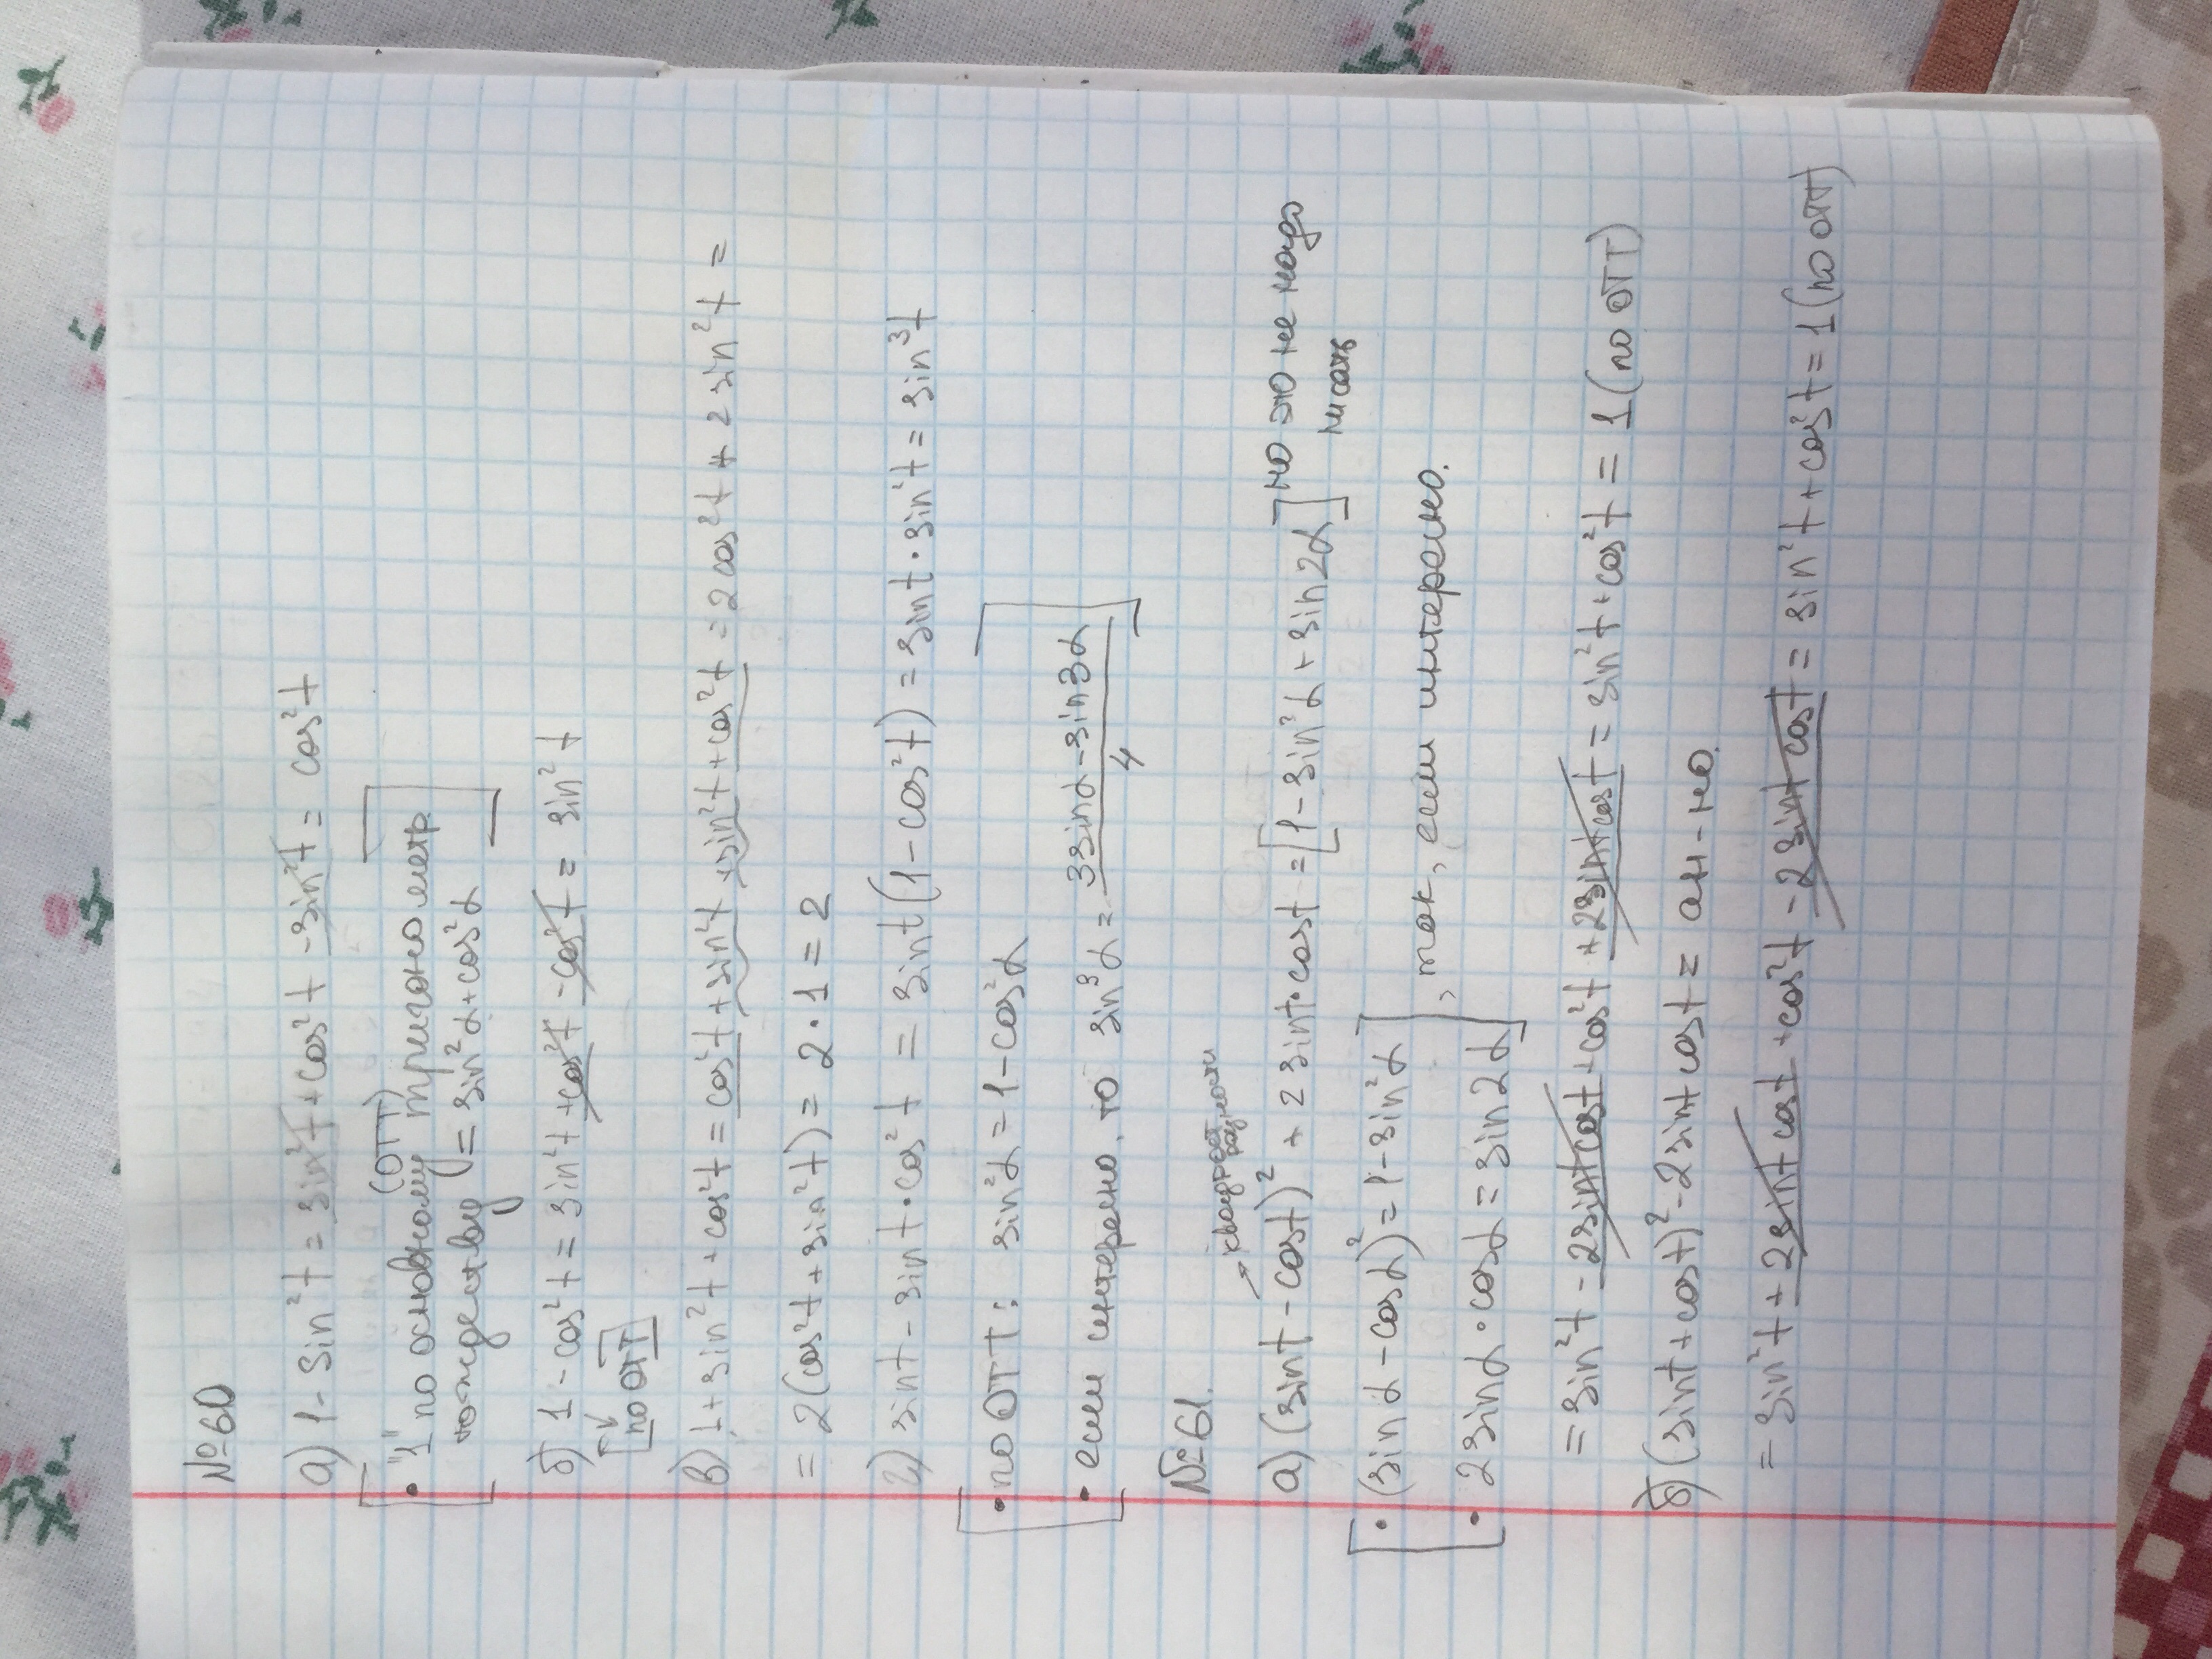 №60
а) 1 - sin²t = sin²t + cos²t - sin²t = cos²t
(ОТТ)
• "1" по основному тригонометр.
тождеству = sin²α + cos²α
б) 1 - cos²t = sin²t + cos²t - cos²t = sin²t
по ОТТ
в) 1 + sin²t + cos²t = cos²t + sin²t + sin²t + cos²t = 2cos²t + 2sin²t =
= 2(cos²t + sin²t) = 2·1 = 2
г) sint - sint·cos²t = sint(1 - cos²t) = sint·sin²t = sin³t
• по ОТТ: sin²α = 1 - cos²α
• если интересно, то sin³α = (3sinα - sin3α)/4
№61.
→ квадрат разности
а) (sint - cost)² + 2sint·cost = [1 - sin²α + sin2α] но это не надо писать
• (sinα - cosα)² = 1 - sin²α
, так, если интересно.
• 2sinα·cosα = sin2α
= sin²t - 2sint cost + cos²t + 2sint cost = sin²t + cos²t = 1 (по ОТТ)
б) (sint + cost)² - 2sint cost = ан-но.
= sin²t + 2sint cost + cos²t - 2sint cost = sin²t + cos²t = 1 (по ОТТ)